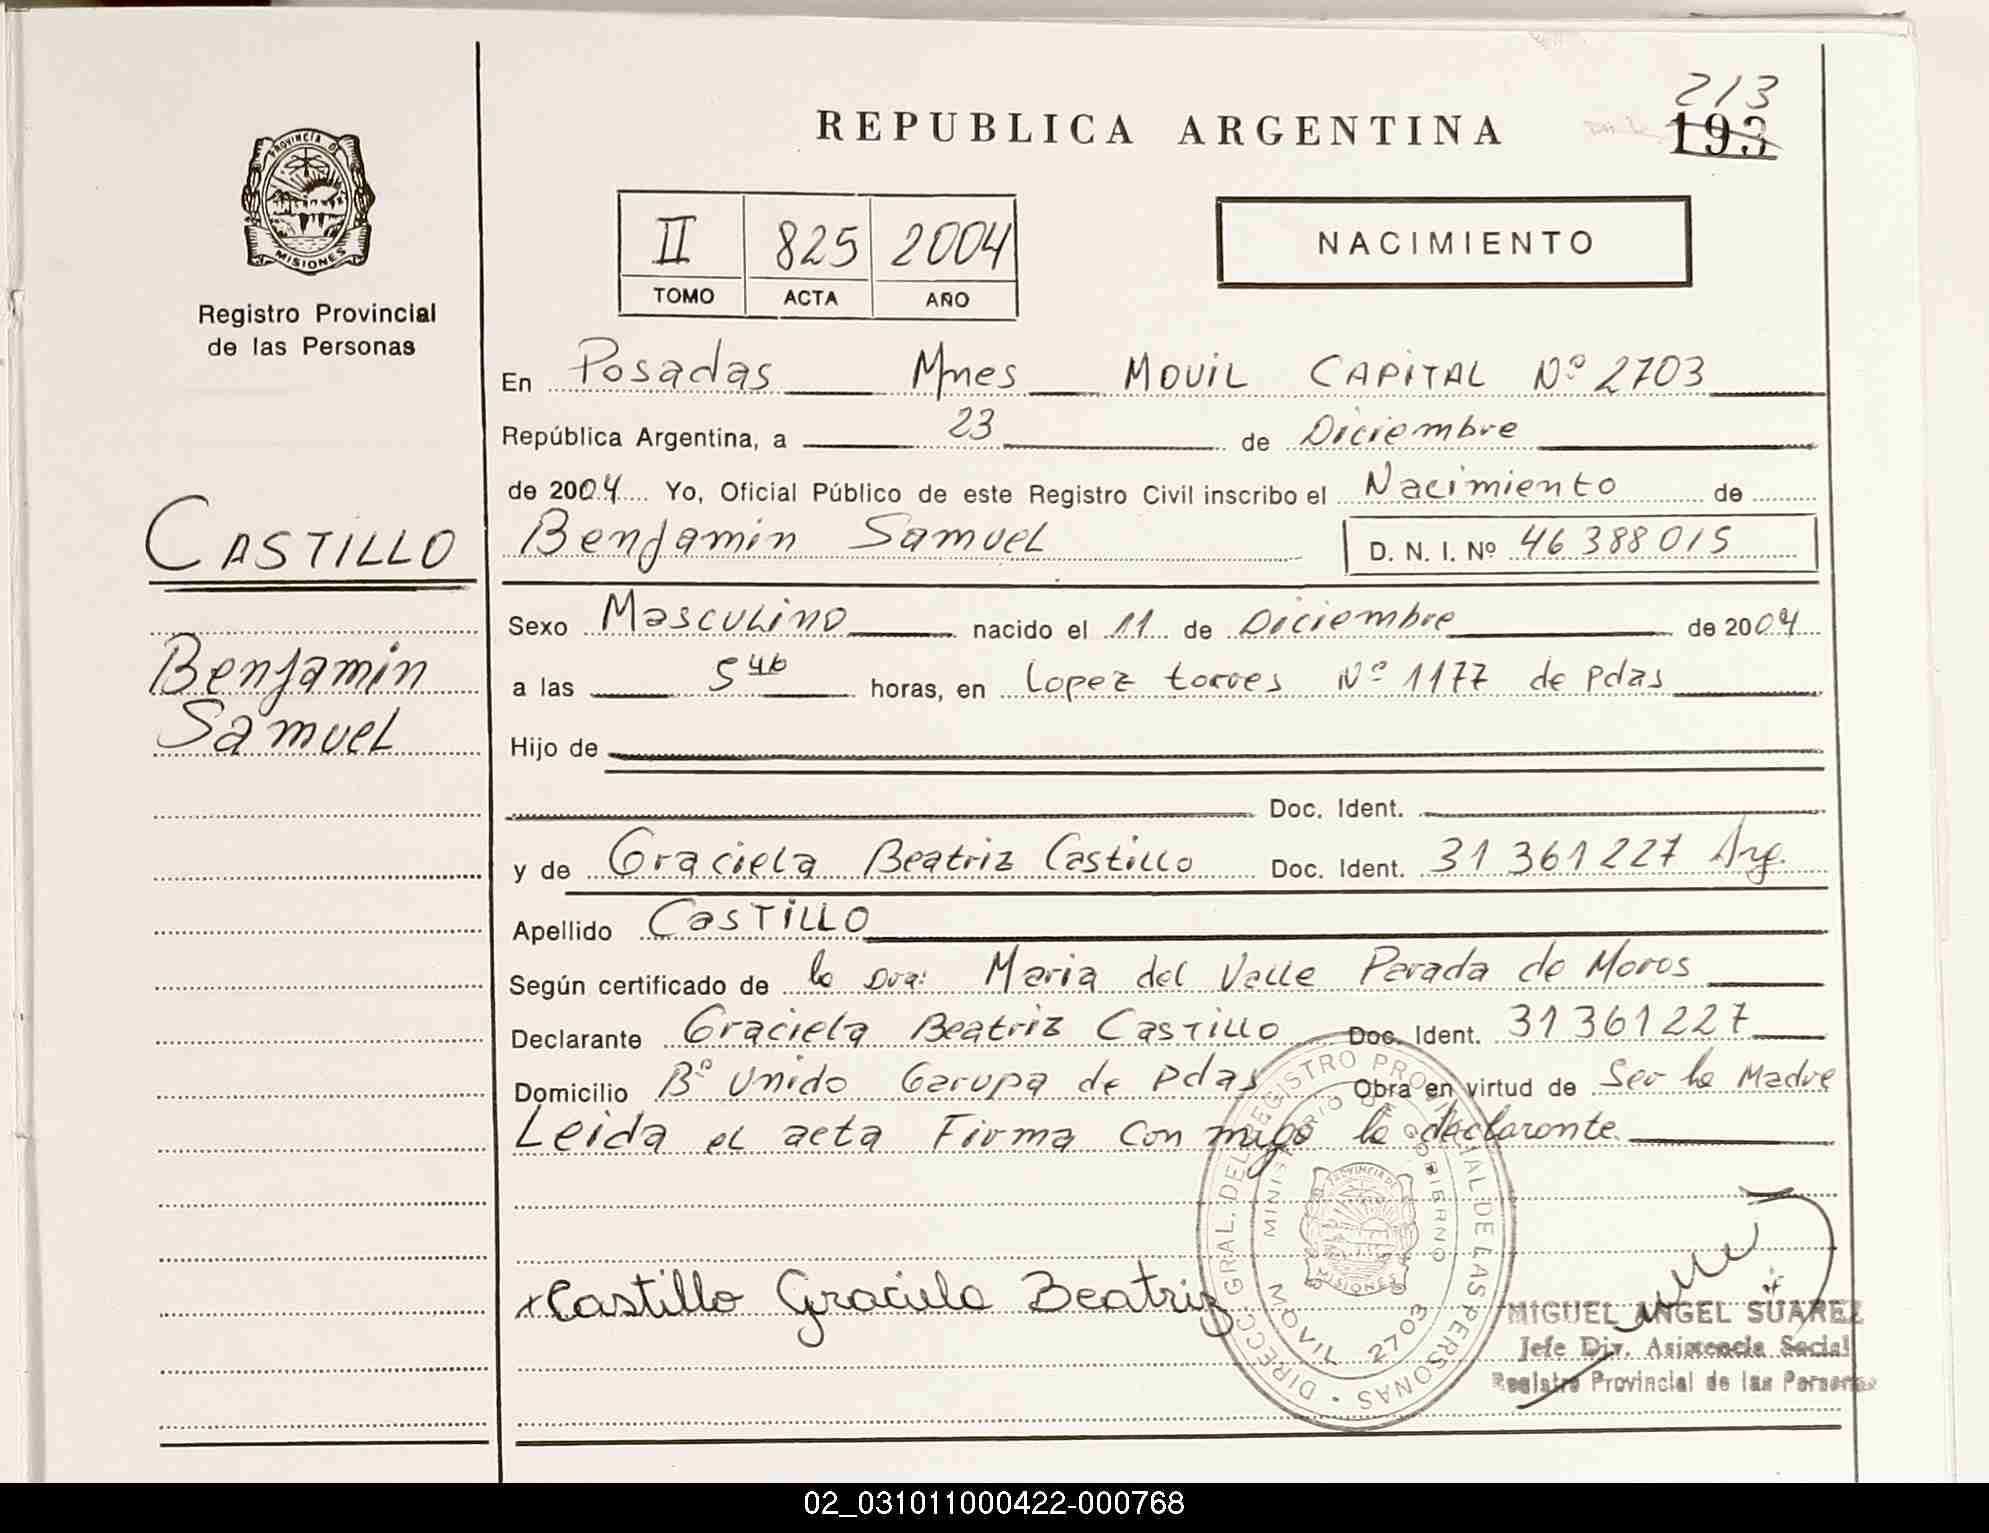 213
REPUBLICA ARGENTINA
193
PROVINCIA DE
MISIONES
Registro Provincial
de las Personas
II 825 2004
TOMO ACTA AÑO
NACIMIENTO
En Posadas Mnes MOVIL CAPITAL Nº 2703
República Argentina, a 23 de Diciembre
de 2004 Yo, Oficial Público de este Registro Civil inscribo el Nacimiento de
CASTILLO
Benjamin Samuel D. N. I. Nº 46 388 015
Sexo Masculino nacido el 11 de Diciembre de 2004
Benjamin
a las 5 46 horas, en Lopez torres Nº 1177 de Pdas
Samuel
Hijo de
Doc. Ident.
y de Graciela Beatriz Castillo Doc. Ident. 31 361 227 Arg.
Apellido CASTILLO
Según certificado de la Dra: Maria del Valle Parada de Moros
Declarante Graciela Beatriz CASTILLO Doc. Ident. 31 361 227
Domicilio Bº Unido Garupa de Pdas Obra en virtud de Ser la Madre
Leida el acta Firma con migo la declarante
DIRECC. GRAL. DEL REGISTRO PROVINCIAL DE LAS PERSONAS
MINISTERIO DE GOBIERNO
PROVINCIA DE
MISIONES
MOVIL 2703
x Castillo Graciela Beatriz
MIGUEL ANGEL SUAREZ
Jefe Div. Asistencia Social
Registro Provincial de las Personas
02_031011000422-000768